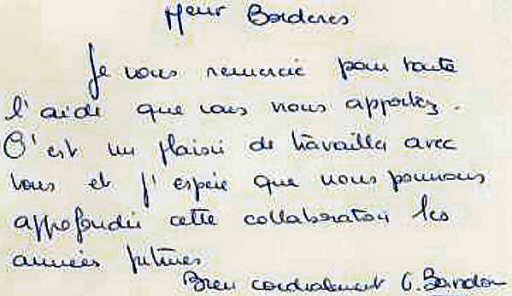 Meur Borderes
Je vous remercie pour toute
l'aide que vous nous apportez.
C'est un plaisir de travailler avec
vous et j'espère que nous pourrons
approfondir cette collaboration les
années futures
Bien cordialement C. Bandon